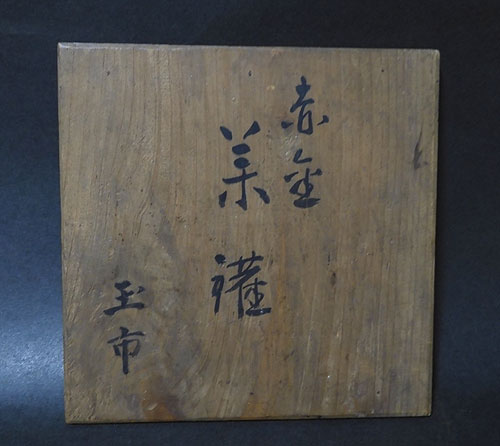 赤金
茶罐
玉市